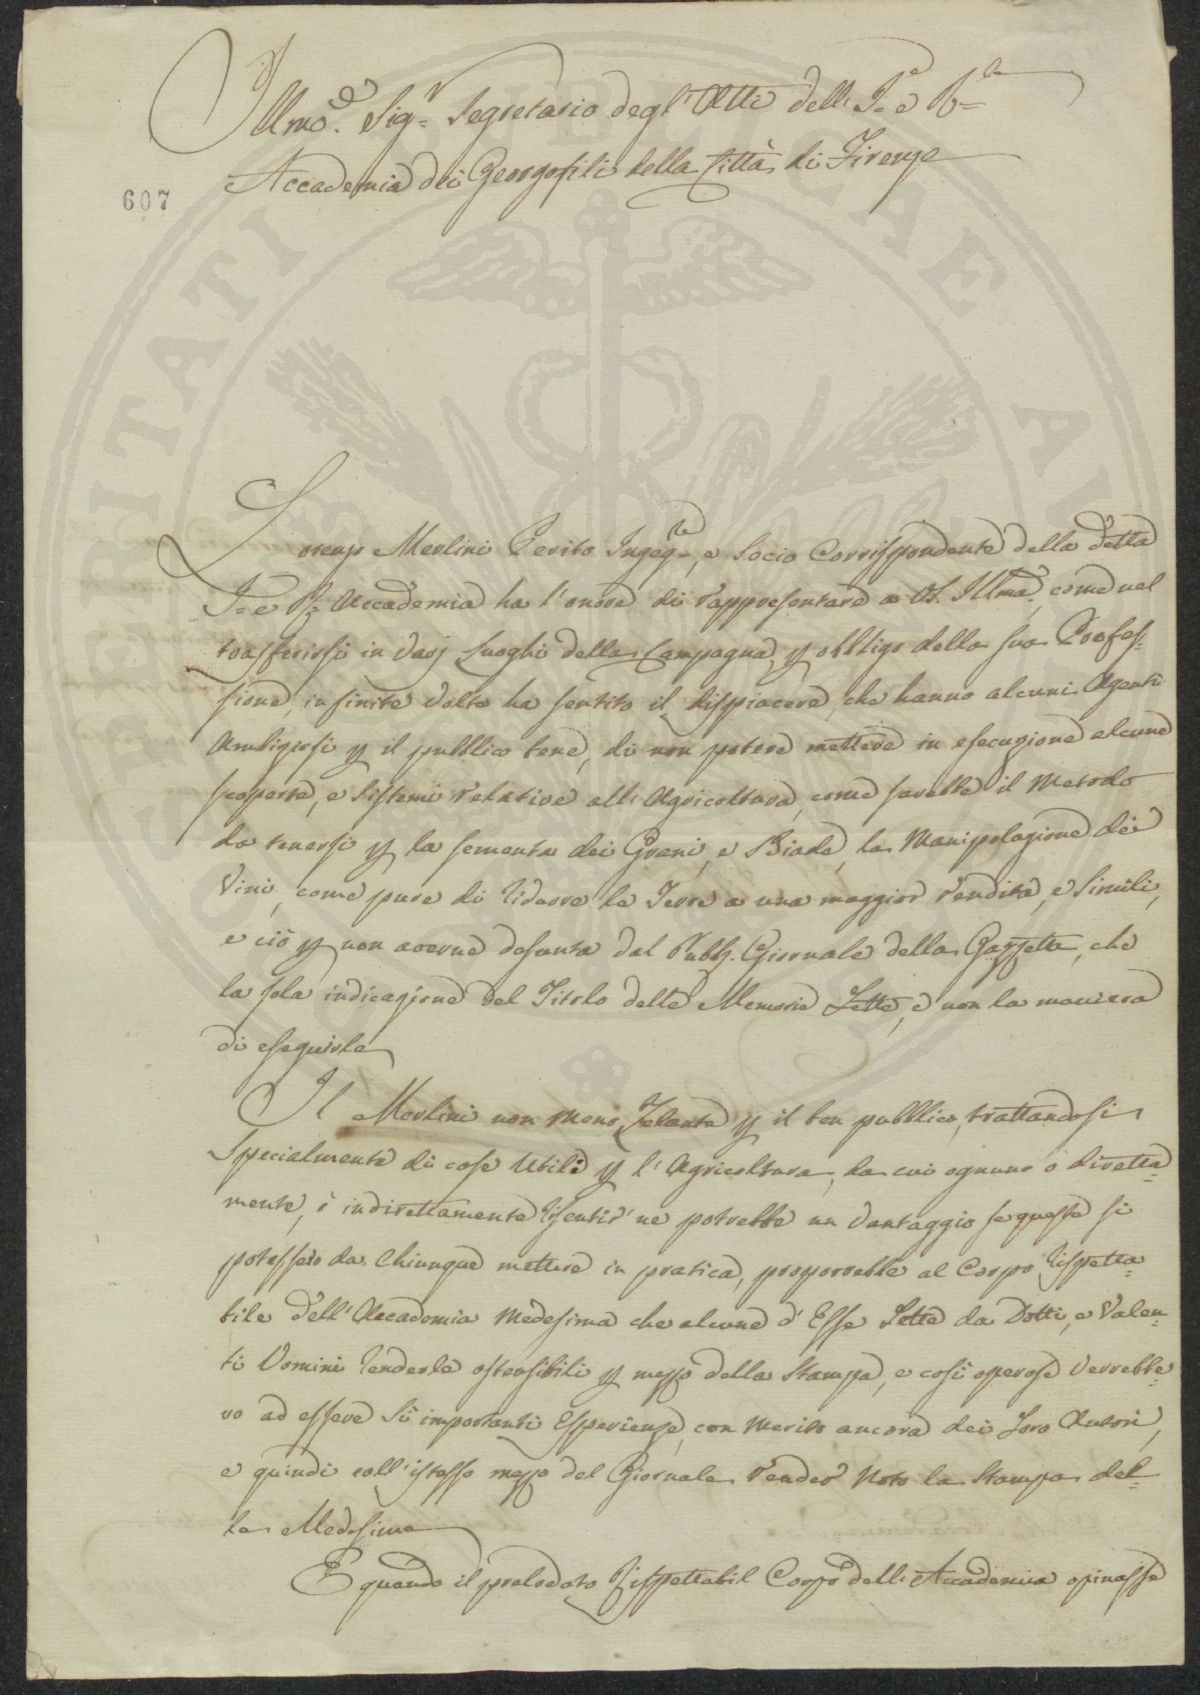 Illmo. Sigr. Segretario degl' Atti dell' I. e R.
Accademia dei Georgofili della Città di Firenze
607
Lorenzo Merlini Perito Ingegre, e Socio Corrispondente della detta
I. e R. Accademia ha l'onore di rappresentare a VS. Illma, come nel
trasferirsi in varj Luoghi della Campagna, p obbligo della sua Profes=
sione, infinite volte ha sentito il dispiacere, che hanno alcuni Agenti
Ambiziosi p il pubblico bene, di non potere mettere in esecuzione alcune
scoperte, e Sistemi relative all' Agricoltura, come sarebbe il Metodo
da tenersi p la sementa dei Grani, e Biade, la Manipolazione dei
Vini, come pure di ridurre le Terre a una maggior rendita, e simili,
e ciò p non averne desunta dal Pubb. Giornale della Gazzetta, che
la sola indicazione del Titolo delle Memorie Lette, e non la maniera
di eseguirle
Il Merlini non meno Zelante p il ben pubblico, trattandosi
specialmente di cose Utili p l' Agricoltura, da cui ognuno o diretta=
mente, o indirettamente risentir ne potrebbe un vantaggio se queste si
potessero da Chiunque mettere in pratica, proporrebbe al Corpo rispetta=
bile dell' Accademia Medesima che alcune d' Esse Lette da Dotti, e Valen=
ti Uomini renderle ostensibili p mezzo della Stampa, e così operose verrebbe=
ro ad essere sì importanti Esperienze, con merito ancora dei loro Autori,
e quindi coll' istesso mezzo del Giornale render noto la Stampa del=
la Medesima
E quando il prelodato Rispettabil Corpo dell' Accademia opinasse